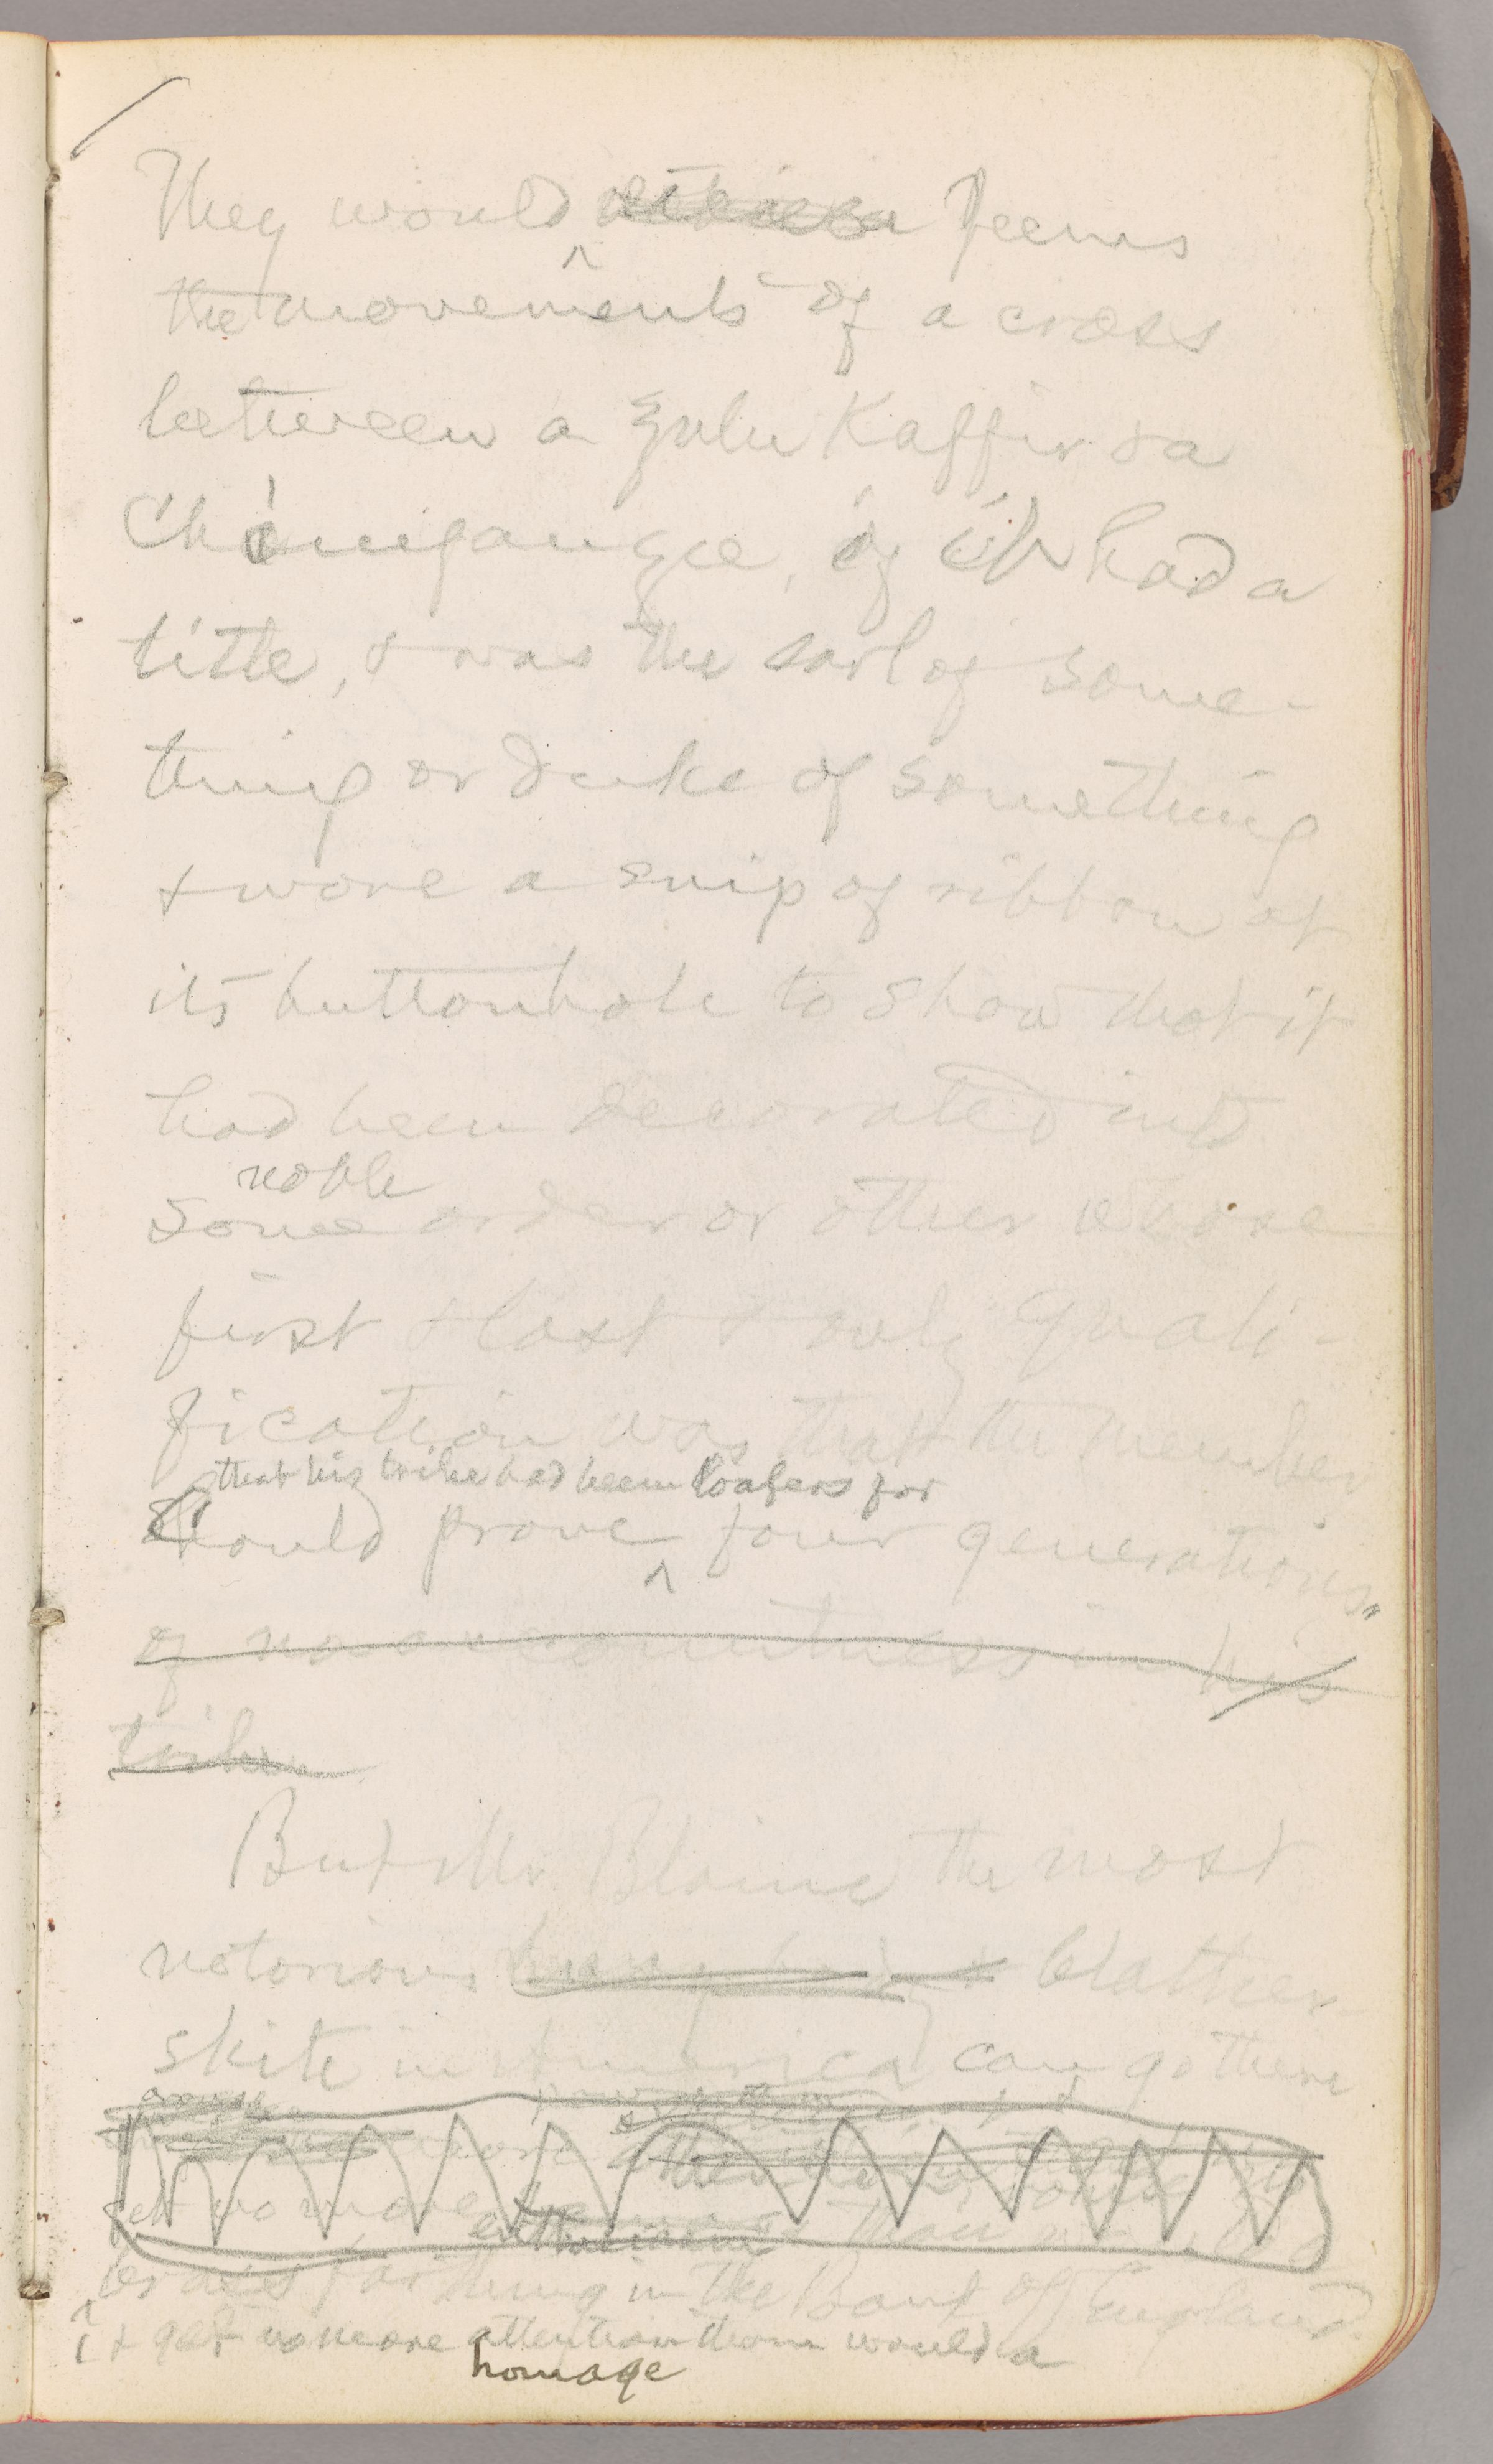 They would Jeems
the movements of a cross
between a Zulu Kaffir & a
Chimpanzee, if it had a
title, & was the earl of some-
thing or duke of something
& wore a snip of ribbon at
its buttonhole to show that it
had been decorated into
noble
some order or other whose
first & last & only quali-
fication was that the member
that his tribe had been loafers for
could prove four generations,
of no-accountness in his
tribe.
But Mr Blaine the most
notorious & blather-
skite in America can go there
than would a
enthusiasm
brass farthing in the Bank of England.
& get no more attention than would a
homage